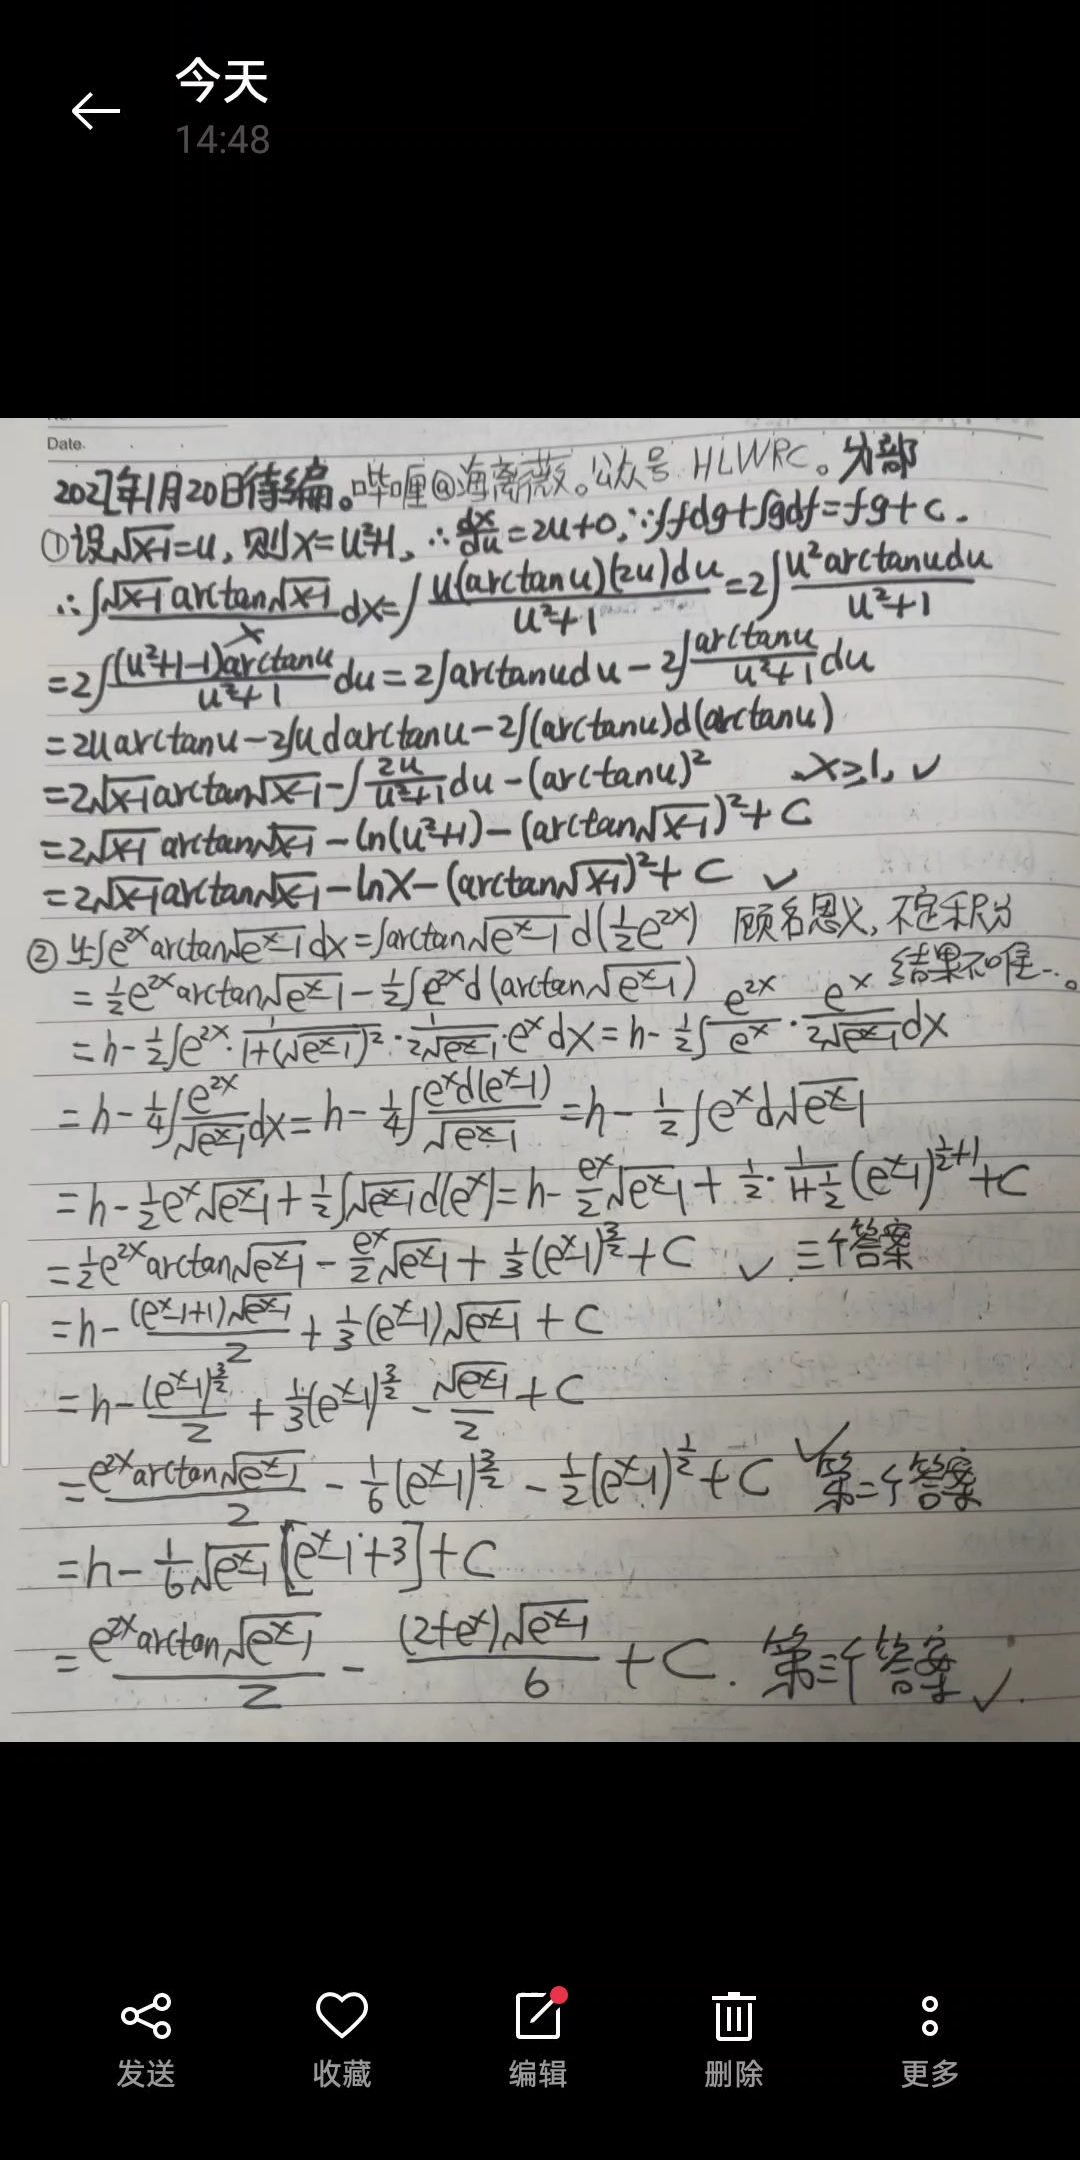 今天
14:48
Date.
2021年1月20日待编。哔哩@海离薇。公众号HLWRC。分部
①设√(x-1)=u, 则x=u²+1, ∴dx/du=2u+0, ∵∫fdg+∫gdf=fg+c.
∴∫(√(x-1) arctan√(x-1))/x dx=∫(u(arctanu)(2u)du)/(u²+1)=2∫(u²arctanudu)/(u²+1)
=2∫((u²+1-1)arctanu)/(u²+1) du=2∫arctanudu-2∫(arctanu)/(u²+1) du
=2uarctanu-2∫udarctanu-2∫(arctanu)d(arctanu)
=2√(x-1) arctan√(x-1)-∫2u/(u²+1) du-(arctanu)² .x≥1, ✓
=2√(x-1) arctan√(x-1)-ln(u²+1)-(arctan√(x-1))²+C
=2√(x-1) arctan√(x-1)-lnx-(arctan√(x-1))²+C ✓
②∫e^(2x)arctan√(e^x-1)dx=∫arctan√(e^x-1)d(½e^(2x)) 顾名思义,不定积分
=½e^(2x)arctan√(e^x-1)-½∫e^(2x)d(arctan√(e^x-1)) 结果不唯一。
=h-½∫e^(2x)·1/(1+(√(e^x-1))²)·1/(2√(e^x-1))·e^x dx=h-½∫e^(2x)/e^x·e^x/(2√(e^x-1))dx
=h-¼∫e^(2x)/√(e^x-1) dx=h-¼∫(e^xd(e^x-1))/√(e^x-1)=h-½∫e^xd√(e^x-1)
=h-½e^x√(e^x-1)+½∫√(e^x-1)d(e^x)=h-e^x/2 √(e^x-1)+½·1/(1+½)(e^x-1)^(½+1)+C
=½e^(2x)arctan√(e^x-1)-e^x/2 √(e^x-1)+⅓(e^x-1)^(3/2)+C ✓.三个答案
=h-((e^x-1+1)√(e^x-1))/2+⅓(e^x-1)√(e^x-1)+C
=h-(e^x-1)^(3/2)/2+⅓(e^x-1)^(3/2)-√(e^x-1)/2+C
=(e^(2x)arctan√(e^x-1))/2-1/6(e^x-1)^(3/2)-½(e^x-1)^(½)+C ✓第二个答案
=h-1/6√(e^x-1)[e^x-1+3]+C
=(e^(2x)arctan√(e^x-1))/2-((2+e^x)√(e^x-1))/6+C.第三个答案✓.
发送 收藏 编辑 删除 更多